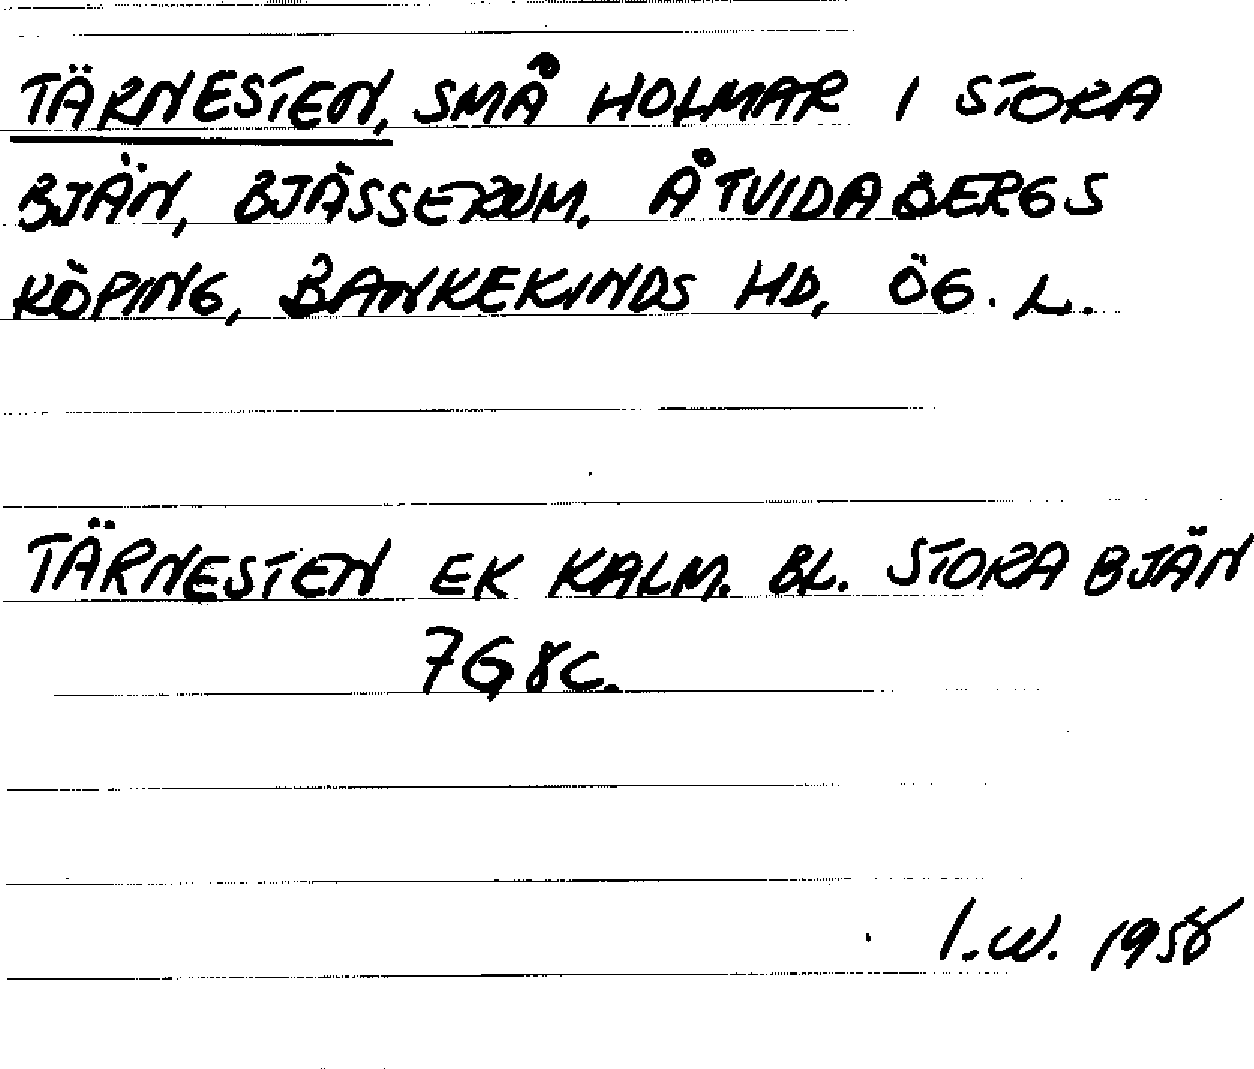 TÄRNESTEN, SMÅ HOLMAR I STORA
BJÄN, BJÄSSERUM. ÅTVIDABERGS
KÖPING, BANKEKINDS HD, ÖG. L.
TÄRNESTEN EK KALM. BL. STORA BJÄN
7G8C.
I.W. 1958